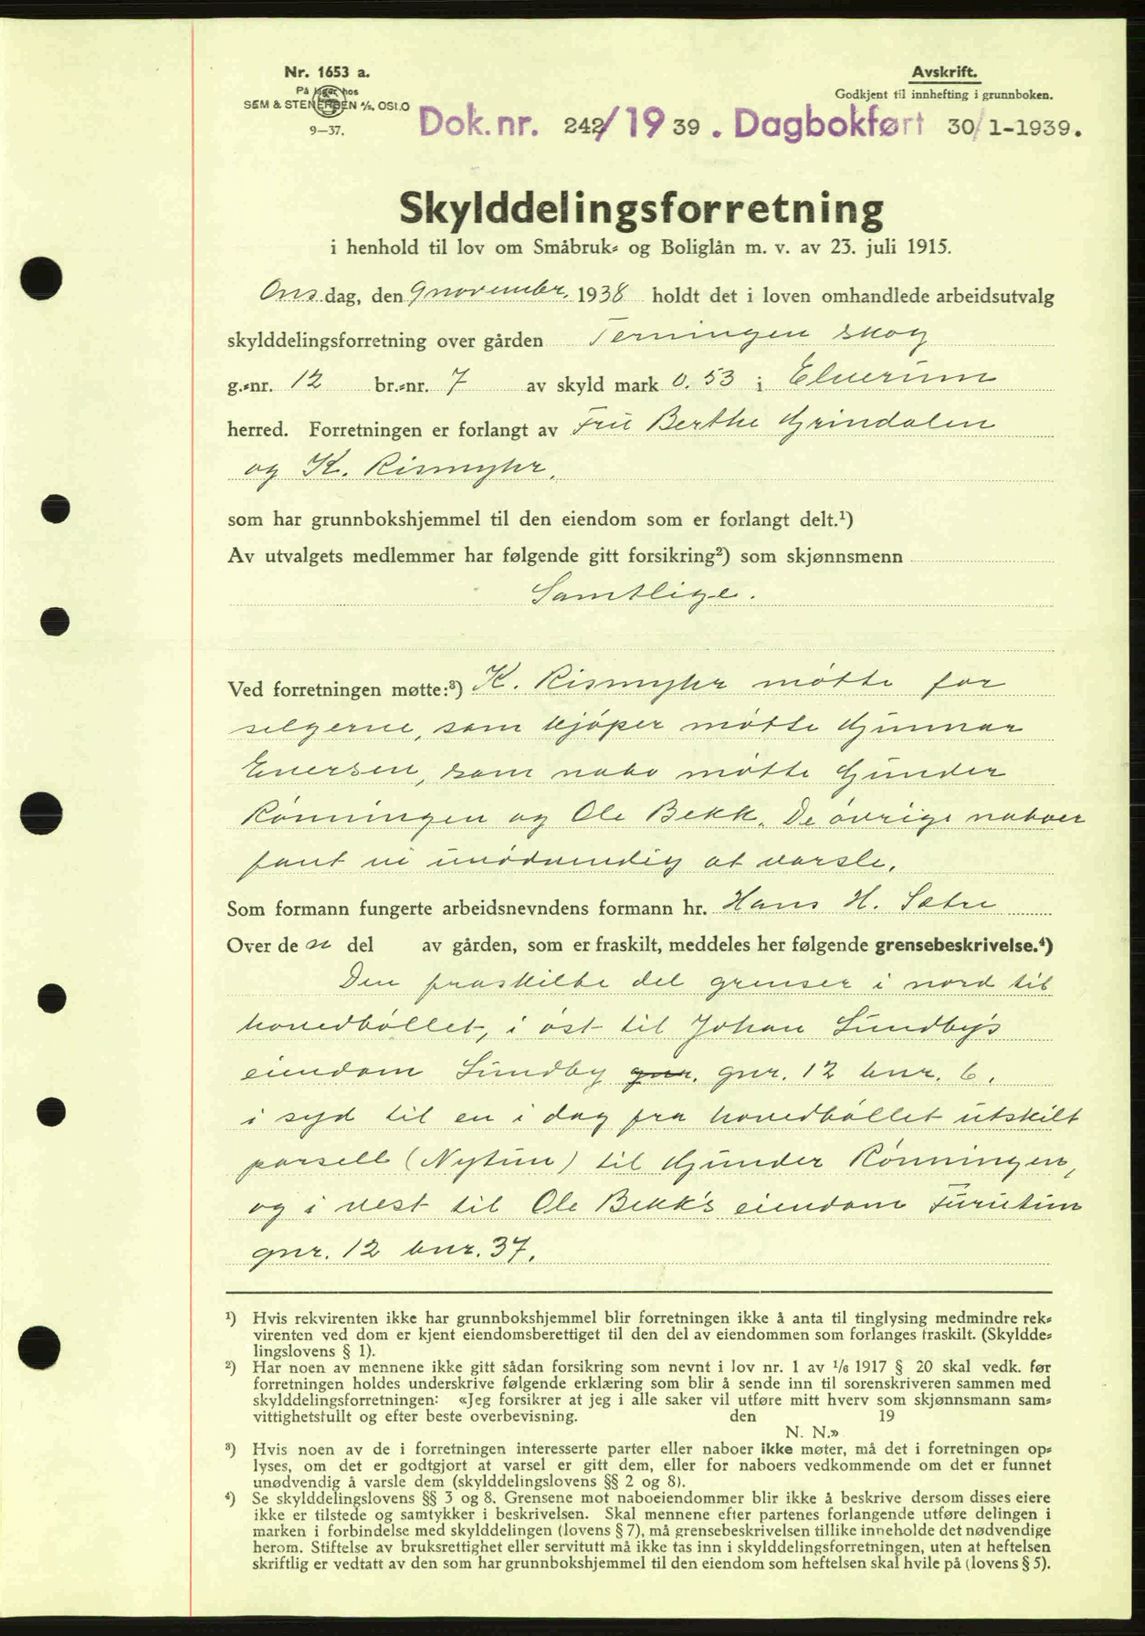 Nr. 1653 a.
På lager hos
SEM & STENERSEN A/S, OSLO
9—37.
Avskrift.
Godkjent til innhefting i grunnboken.
Dok. nr. 242/1939. Dagbokført 30/1-1939.
Skylddelingsforretning
i henhold til lov om Småbruk- og Boliglån m. v. av 23. juli 1915.
Onsdag, den 9 november. 1938 holdt det i loven omhandlede arbeidsutvalg
skylddelingsforretning over gården Terningen skog
g.-nr. 12 br.-nr. 7 av skyld mark 0.53 i Elverum
herred. Forretningen er forlangt av Fru Berthe Grindalen
og K. Rismyhr.
som har grunnbokshjemmel til den eiendom som er forlangt delt.¹)
Av utvalgets medlemmer har følgende gitt forsikring²) som skjønnsmenn
Samtlige.
Ved forretningen møtte:³) K. Rismyhr møtte for
selgerne, som kjøper møtte Gunnar
Eversen, som nabo møtte Gunder
Rønningen og Ole Bekk. De øvrige naboer
fant vi unødvendig at varsle.
Som formann fungerte arbeidsnevndens formann hr. Hans H. Sætre
Over den del av gården, som er fraskilt, meddeles her følgende grensebeskrivelse.⁴)
Den fraskilte del grenser i nord til
hovedbøllet, i øst til Johan Lundby's
eiendom Lundby gnr. gnr. 12 bnr. 6,
i syd til en i dag fra hovedbøllet utskilt
parsell (Nytun) til Gunder Rønningen,
og i vest til Ole Bekk's eiendom Furutun
gnr. 12 bnr. 37.
¹) Hvis rekvirenten ikke har grunnbokshjemmel blir forretningen ikke å anta til tinglysing medmindre rek-
virenten ved dom er kjent eiendomsberettiget til den del av eiendommen som forlanges fraskilt. (Skyldde-
lingslovens § 1).
²) Har noen av mennene ikke gitt sådan forsikring som nevnt i lov nr. 1 av 1/6 1917 § 20 skal vedk. før
forretningen holdes underskrive følgende erklæring som blir å sende inn til sorenskriveren sammen med
skylddelingsforretningen: «Jeg forsikrer at jeg i alle saker vil utføre mitt hverv som skjønnsmann sam-
vittighetsfullt og efter beste overbevisning. den 19
N. N.»
³) Hvis noen av de i forretningen interesserte parter eller naboer ikke møter, må det i forretningen op-
lyses, om det er godtgjort at varsel er gitt dem, eller for naboers vedkommende om det er funnet
unødvendig å varsle dem (skylddelingslovens §§ 2 og 8).
⁴) Se skylddelingslovens §§ 3 og 8. Grensene mot naboeiendommer blir ikke å beskrive dersom disses eiere
ikke er tilstede og samtykker i beskrivelsen. Skal mennene efter partenes forlangende utføre delingen i
marken i forbindelse med skylddelingen (lovens § 7), må grensebeskrivelsen tillike inneholde det nødvendige
herom. Stiftelse av bruksrettighet eller servitutt må ikke tas inn i skylddelingsforretningen, uten at heftelsen
skriftlig er vedtatt av den som har grunnbokshjemmel til den eiendom som heftelsen skal hvile på (lovens § 5).